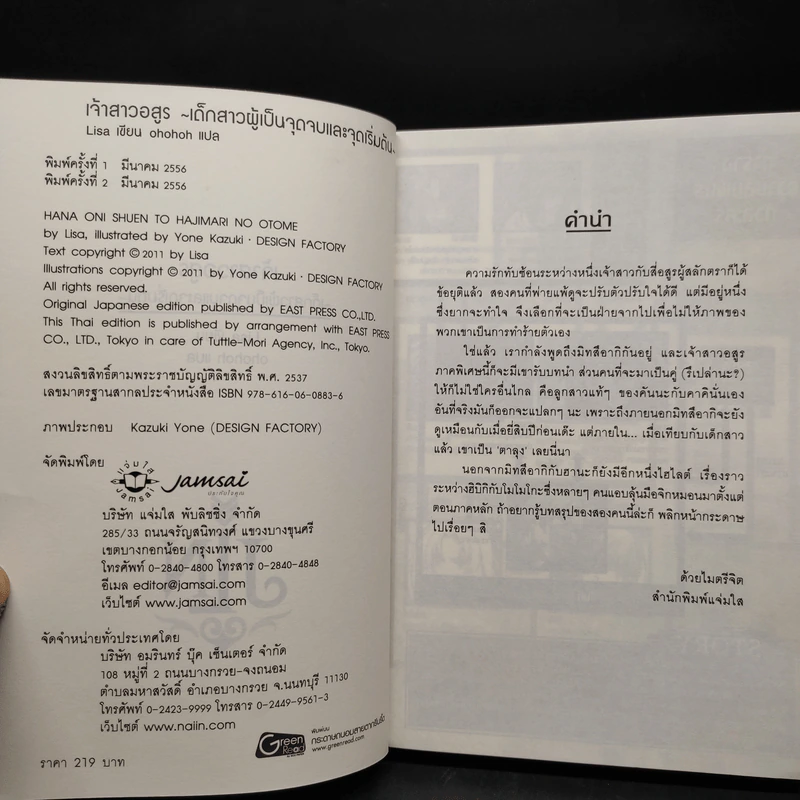 เจ้าสาวอสูร ~เด็กสาวผู้เป็นจุดจบและจุดเริ่มต้น~
Lisa เขียน ohohoh แปล
พิมพ์ครั้งที่ 1 มีนาคม 2556
พิมพ์ครั้งที่ 2 มีนาคม 2556
HANA ONI SHUEN TO HAJIMARI NO OTOME
by Lisa, illustrated by Yone Kazuki · DESIGN FACTORY
Text copyright © 2011 by Lisa
Illustrations copyright © 2011 by Yone Kazuki · DESIGN FACTORY
All rights reserved.
Original Japanese edition published by EAST PRESS CO.,LTD.
This Thai edition is published by arrangement with EAST PRESS
CO., LTD., Tokyo in care of Tuttle-Mori Agency, Inc., Tokyo.
สงวนลิขสิทธิ์ตามพระราชบัญญัติลิขสิทธิ์ พ.ศ. 2537
เลขมาตรฐานสากลประจำหนังสือ ISBN 978-616-06-0883-6
ภาพประกอบ Kazuki Yone (DESIGN FACTORY)
จัดพิมพ์โดย
แจ่มใส
Jamsai
jamsai
ประทับใจคุณ
บริษัท แจ่มใส พับลิชชิ่ง จำกัด
285/33 ถนนจรัญสนิทวงศ์ แขวงบางขุนศรี
เขตบางกอกน้อย กรุงเทพฯ 10700
โทรศัพท์ 0-2840-4800 โทรสาร 0-2840-4848
อีเมล editor@jamsai.com
เว็บไซต์ www.jamsai.com
จัดจำหน่ายทั่วประเทศโดย
บริษัท อมรินทร์ บุ๊ค เซ็นเตอร์ จำกัด
108 หมู่ที่ 2 ถนนบางกรวย-จงถนอม
ตำบลมหาสวัสดิ์ อำเภอบางกรวย จ.นนทบุรี 11130
โทรศัพท์ 0-2423-9999 โทรสาร 0-2449-9561-3
เว็บไซต์ www.naiin.com
Green Read
พิมพ์บน
กระดาษถนอมสายตากรีนรี้ด
www.greenread.com
ราคา 219 บาท
คำนำ
ความรักทับซ้อนระหว่างหนึ่งเจ้าสาวกับสี่อสูรผู้สลักตราก็ได้
ข้อยุติแล้ว สองคนที่พ่ายแพ้ดูจะปรับตัวปรับใจได้ดี แต่มีอยู่หนึ่ง
ซึ่งยากจะทำใจ จึงเลือกที่จะเป็นฝ่ายจากไปเพื่อไม่ให้ภาพของ
พวกเขาเป็นการทำร้ายตัวเอง
ใช่แล้ว เรากำลังพูดถึงมิทสึอากิกันอยู่ และเจ้าสาวอสูร
ภาคพิเศษนี้ก็จะมีเขารับบทนำ ส่วนคนที่จะมาเป็นคู่ (รึเปล่านะ?)
ให้ก็ไม่ใช่ใครอื่นไกล คือลูกสาวแท้ๆ ของคันนะกับคาคินั่นเอง
อันที่จริงมันก็ออกจะแปลกๆ นะ เพราะถึงภายนอกมิทสึอากิจะยัง
ดูเหมือนกับเมื่อยี่สิบปีก่อนเด๊ะ แต่ภายใน... เมื่อเทียบกับเด็กสาว
แล้ว เขาเป็น 'ตาลุง' เลยนี่นา
นอกจากมิทสึอากิกับฮานะก็ยังมีอีกหนึ่งไฮไลต์ เรื่องราว
ระหว่างฮิบิกิกับโมโมโกะซึ่งหลายๆ คนแอบลุ้นมือจิกหมอนมาตั้งแต่
ตอนภาคหลัก ถ้าอยากรู้บทสรุปของสองคนนี้ล่ะก็ พลิกหน้ากระดาษ
ไปเรื่อยๆ สิ
ด้วยไมตรีจิต
สำนักพิมพ์แจ่มใส